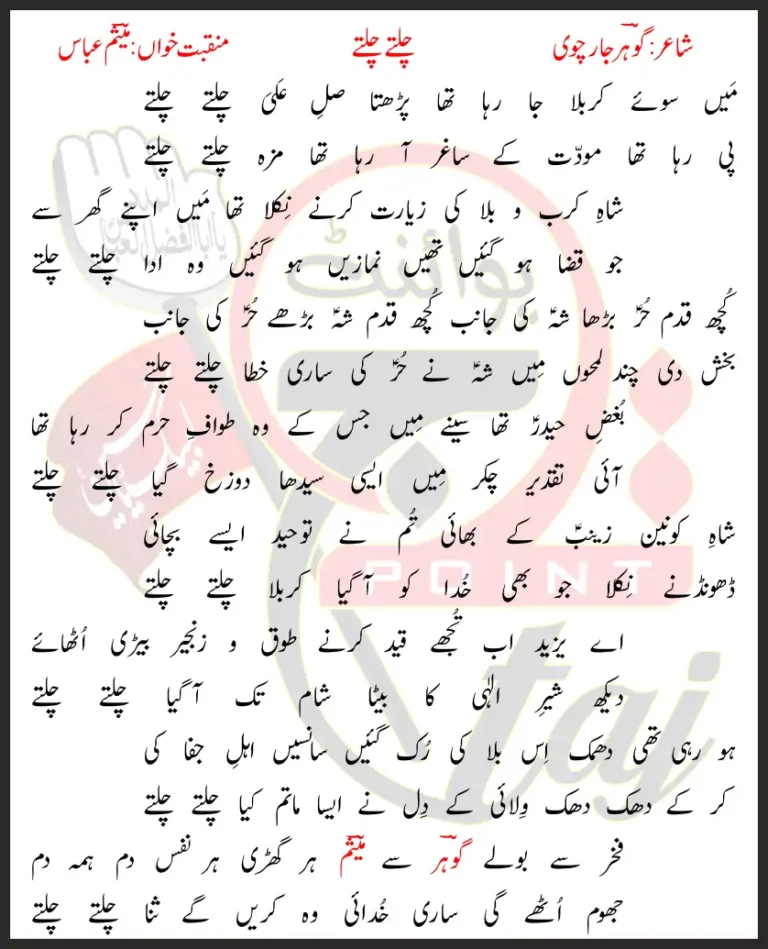 شاعر: گوہر جارچوی چلتے چلتے منقبت خواں: میثم عباس
مَیں سوئے کربلا جا رہا تھا پڑھتا صلِ علیٰ چلتے چلتے
پی رہا تھا مودّت کے ساغر آ رہا تھا مزہ چلتے چلتے
شاہِ کرب و بلا کی زیارت کرنے نِکلا تھا مَیں اپنے گھر سے
جو قضا ہو گئیں تھیں نمازیں ہو گئیں وہ ادا چلتے چلتے
کُچھ قدم حُرؑ بڑھا شہؑ کی جانب کُچھ قدم شہؑ بڑھے حُرؑ کی جانب
بخش دی چند لمحوں مِیں شہؑ نے حُرؑ کی ساری خطا چلتے چلتے
بُغضِ حیدرؑ تھا سینے مِیں جس کے وہ طوافِ حرم کر رہا تھا
آئی تقدیر چکر مِیں ایسی سیدھا دوزخ گیا چلتے چلتے
شاہِ کونین زینبؑ کے بھائی تُم نے توحید ایسے بچائی
ڈھونڈنے نِکلا جو بھی خُدا کو آ گیا کربلا چلتے چلتے
اے یزید اب تُجھے قید کرنے طوق و زنجیر بیڑی اُٹھائے
دیکھ شیرِ الٰہی کا بیٹا شام تک آ گیا چلتے چلتے
ہو رہی تھی دھمک اِس بلا کی رُک گئیں سانسیں اہلِ جفا کی
کر کے دھک دھک وِلائی کے دِل نے ایسا ماتم کیا چلتے چلتے
فخر سے بولے گوہر سے میثم ہر گھڑی ہر نفس دم ہمہ دم
جھوم اُٹھے گی ساری خُدائی وہ کریں گے ثنا چلتے چلتے
پوائنٹ
POINT
taj